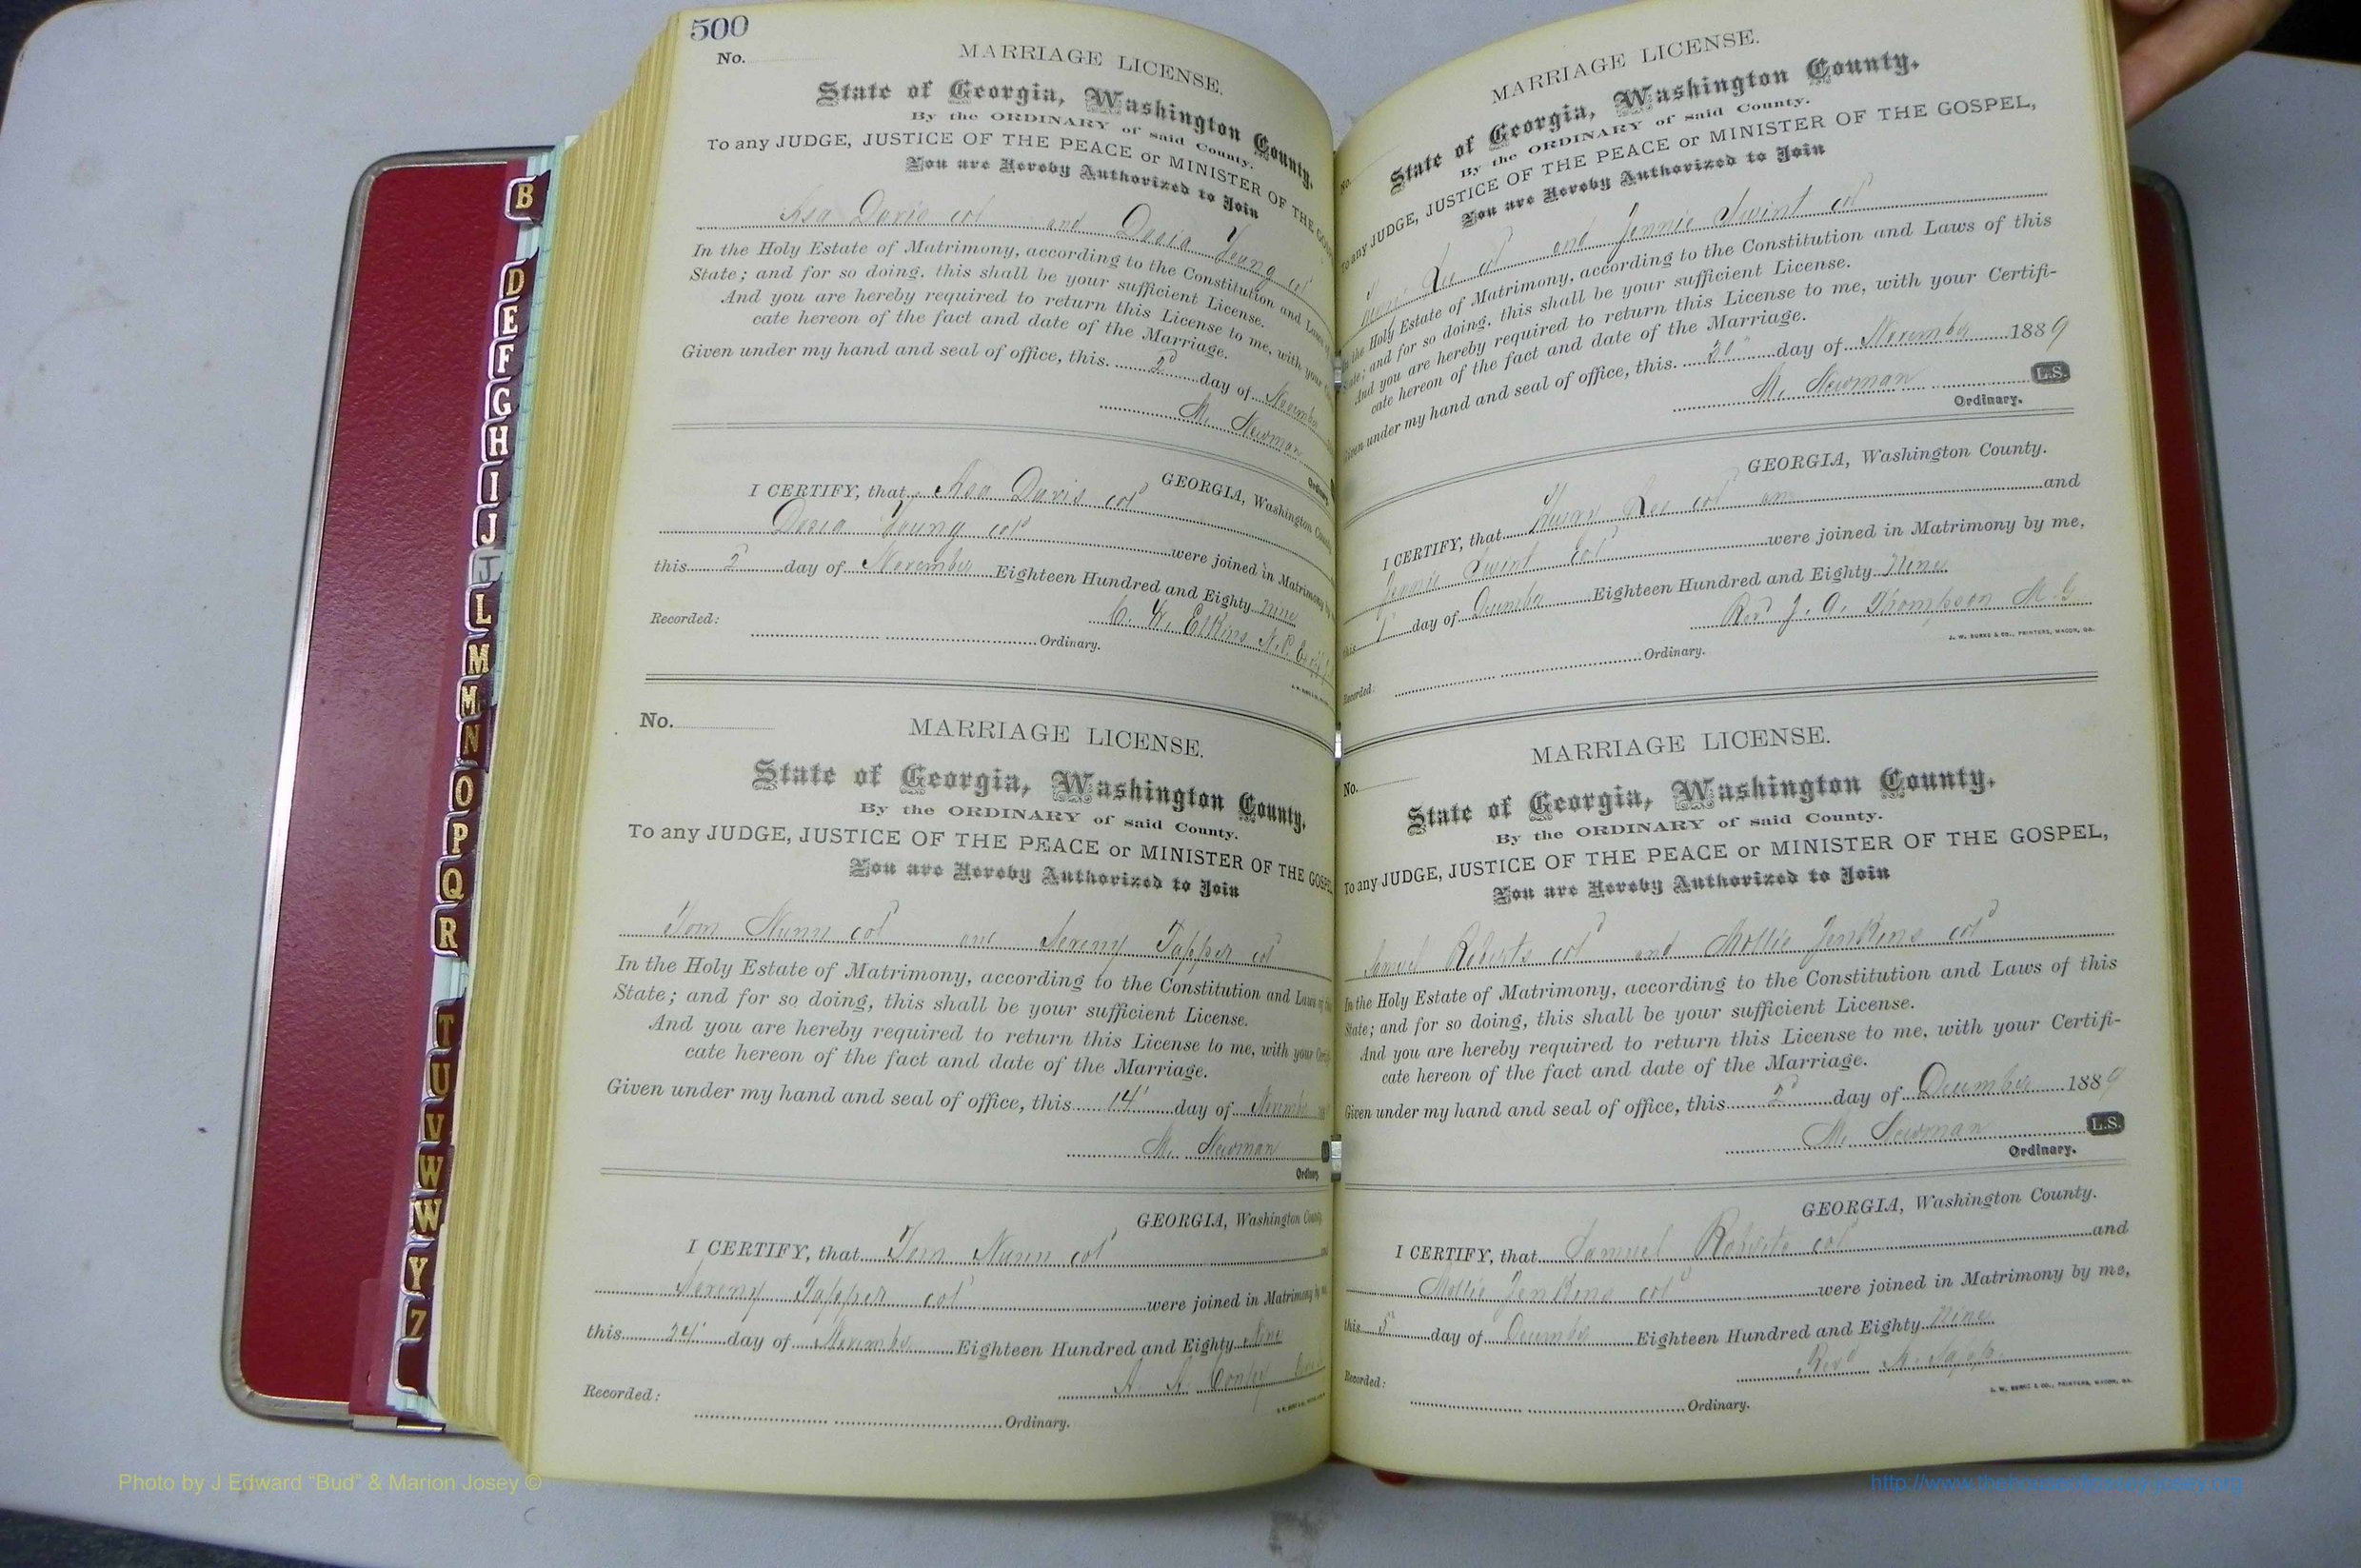 500
No.
MARRIAGE LICENSE.
State of Georgia, Washington County.
By the ORDINARY of said County.
To any JUDGE, JUSTICE OF THE PEACE or MINISTER OF THE
You are Hereby Authorized to Join
Asa Davis col and Young col
In the Holy Estate of Matrimony, according to the Constitution and Laws of
State; and for so doing, this shall be your sufficient License.
And you are hereby required to return this License to me, with your
cate hereon of the fact and date of the Marriage.
Given under my hand and seal of office, this 2d day of November
M. Newman
Ordinary.
GEORGIA, Washington County
I CERTIFY, that Asa Davis col
Young col were joined in Matrimony
this 2 day of November Eighteen Hundred and Eighty nine
C. W. Elkins N.P.
Recorded:
Ordinary.
No.
MARRIAGE LICENSE.
State of Georgia, Washington County.
By the ORDINARY of said County.
To any JUDGE, JUSTICE OF THE PEACE or MINISTER OF THE
You are Hereby Authorized to Join
Tom Nunn col and Sereny Tapper col
In the Holy Estate of Matrimony, according to the Constitution and Laws
State; and for so doing, this shall be your sufficient License.
And you are hereby required to return this License to me, with your
cate hereon of the fact and date of the Marriage.
Given under my hand and seal of office, this 14 day of November
M. Newman
Ordinary
GEORGIA, Washington
I CERTIFY, that Tom Nunn col
Sereny Tapper col were joined in Matrimony
this 24 day of November Eighteen Hundred and Eighty Nine
Recorded:
Ordinary.
No.
MARRIAGE LICENSE.
State of Georgia, Washington County.
By the ORDINARY of said County.
To any JUDGE, JUSTICE OF THE PEACE or MINISTER OF THE GOSPEL,
You are Hereby Authorized to Join
Lee col and Jennie Swint col
In the Holy Estate of Matrimony, according to the Constitution and Laws of this
State; and for so doing, this shall be your sufficient License.
And you are hereby required to return this License to me, with your Certifi-
cate hereon of the fact and date of the Marriage.
Given under my hand and seal of office, this 30 day of November 1889
M. Newman L.S.
Ordinary.
GEORGIA, Washington County.
I CERTIFY, that Lee col and
Jennie Swint col were joined in Matrimony by me,
this 1 day of December Eighteen Hundred and Eighty Nine
Rev J. A. Thompson M.G
J. W. BURKE & CO., PRINTERS, MACON, GA.
Recorded:
Ordinary.
No.
MARRIAGE LICENSE.
State of Georgia, Washington County.
By the ORDINARY of said County.
To any JUDGE, JUSTICE OF THE PEACE or MINISTER OF THE GOSPEL,
You are Hereby Authorized to Join
Samuel Roberts col and Mollie Jenkins col
In the Holy Estate of Matrimony, according to the Constitution and Laws of this
State; and for so doing, this shall be your sufficient License.
And you are hereby required to return this License to me, with your Certifi-
cate hereon of the fact and date of the Marriage.
Given under my hand and seal of office, this 2 day of December 1889
M. Newman L.S.
Ordinary.
GEORGIA, Washington County.
I CERTIFY, that Samuel Roberts col and
Mollie Jenkins col were joined in Matrimony by me,
this 5 day of December Eighteen Hundred and Eighty Nine
Revd
J. W. BURKE & CO., PRINTERS, MACON, GA.
Recorded:
Ordinary.
B
D
E
F
G
H
I
J
J
L
M
M
N
O
P
Q
R
T
U
V
W
W
Y
Z
Photo by J Edward “Bud” & Marion Josey ©